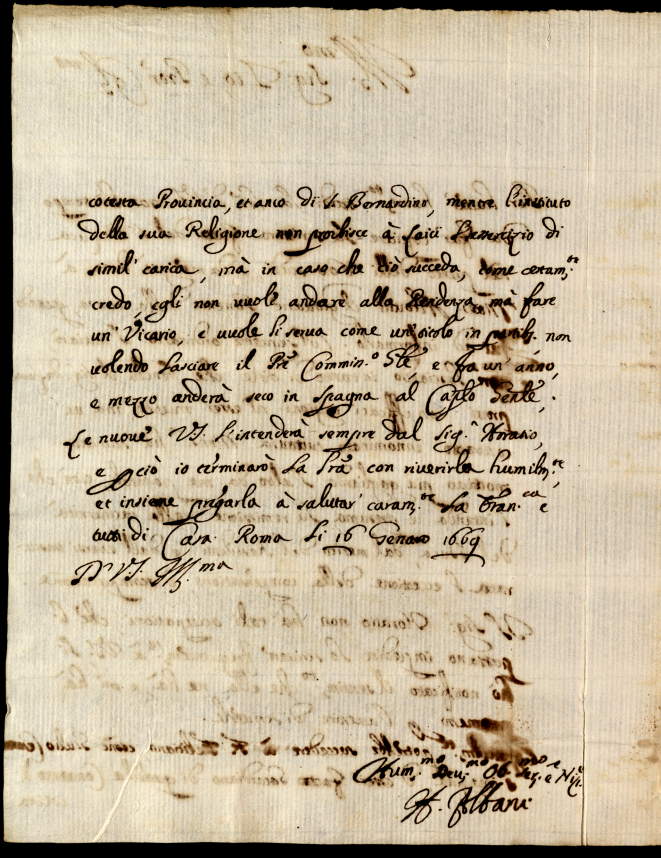 cotesta Prouincia, et anco di S. Bernardino, mentre l'instituto
della sua Religione non proibisce à Laici l'essercizio di
simil' carica, mà in caso che ciò succeda, come certam.te
credo, egli non uuole andare alla Residenza mà fare
un' Vicario, e uuole li serua come un titolo in partib. non
uolendo lasciare il Pre Commiss.o Gle, e fra un' anno,
e mezzo anderà seco in Spagna al Caplo Genle,.
Le nuoue VS. l'intenderà sempre dal Sig.r Horatio,
e perciò io terminarò la pra con riuerirla humilm.te
et insieme pregarla à salutar' caram.te la Sran.ca e
tutti di Casa. Roma li 16 Genaro 1669
Di VS. Ill.ma
Hum.mo Deu.mo Ob.mo Ser.e e Nip.e
H. Albani